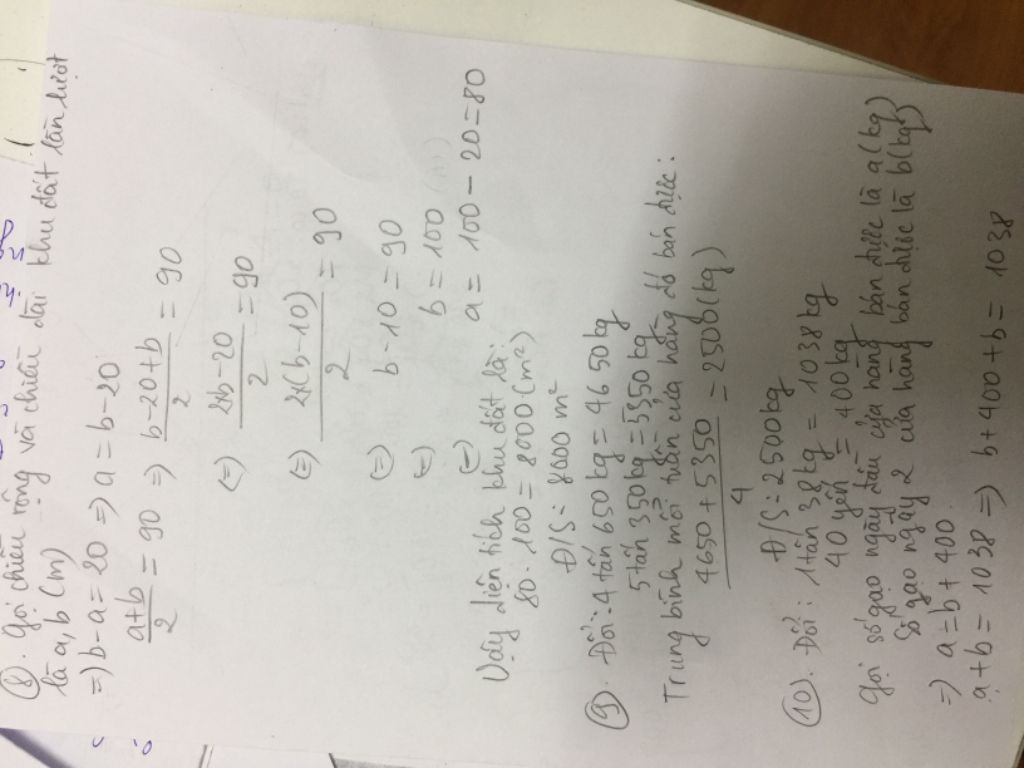 8. Gọi chiều rộng và chiều dài khu đất lần lượt
là a, b (m)
=) b - a = 20 =) a = b - 20
a+b/2 = 90 =) b-20+b/2 = 90
(=) 2b-20/2 = 90
(=) 2(b-10)/2 = 90
(=) b - 10 = 90
(=) b = 100
(=) a = 100 - 20 = 80
Vậy diện tích khu đất là:
80 . 100 = 8000 (m²)
Đ/S: 8000 m²
9. Đổi: 4 tấn 650 kg = 4650 kg
5 tấn 350 kg = 5350 kg
Trung bình mỗi tuần cửa hàng đó bán được:
4650 + 5350/4 = 2500 (kg)
Đ/S: 2500 kg
10. Đổi: 1 tấn 38 kg = 1038 kg
40 yến = 400 kg
Gọi số gạo ngày đầu cửa hàng bán được là a (kg)
Số gạo ngày 2 cửa hàng bán được là b (kg)
=) a = b + 400
a + b = 1038 =) b + 400 + b = 1038